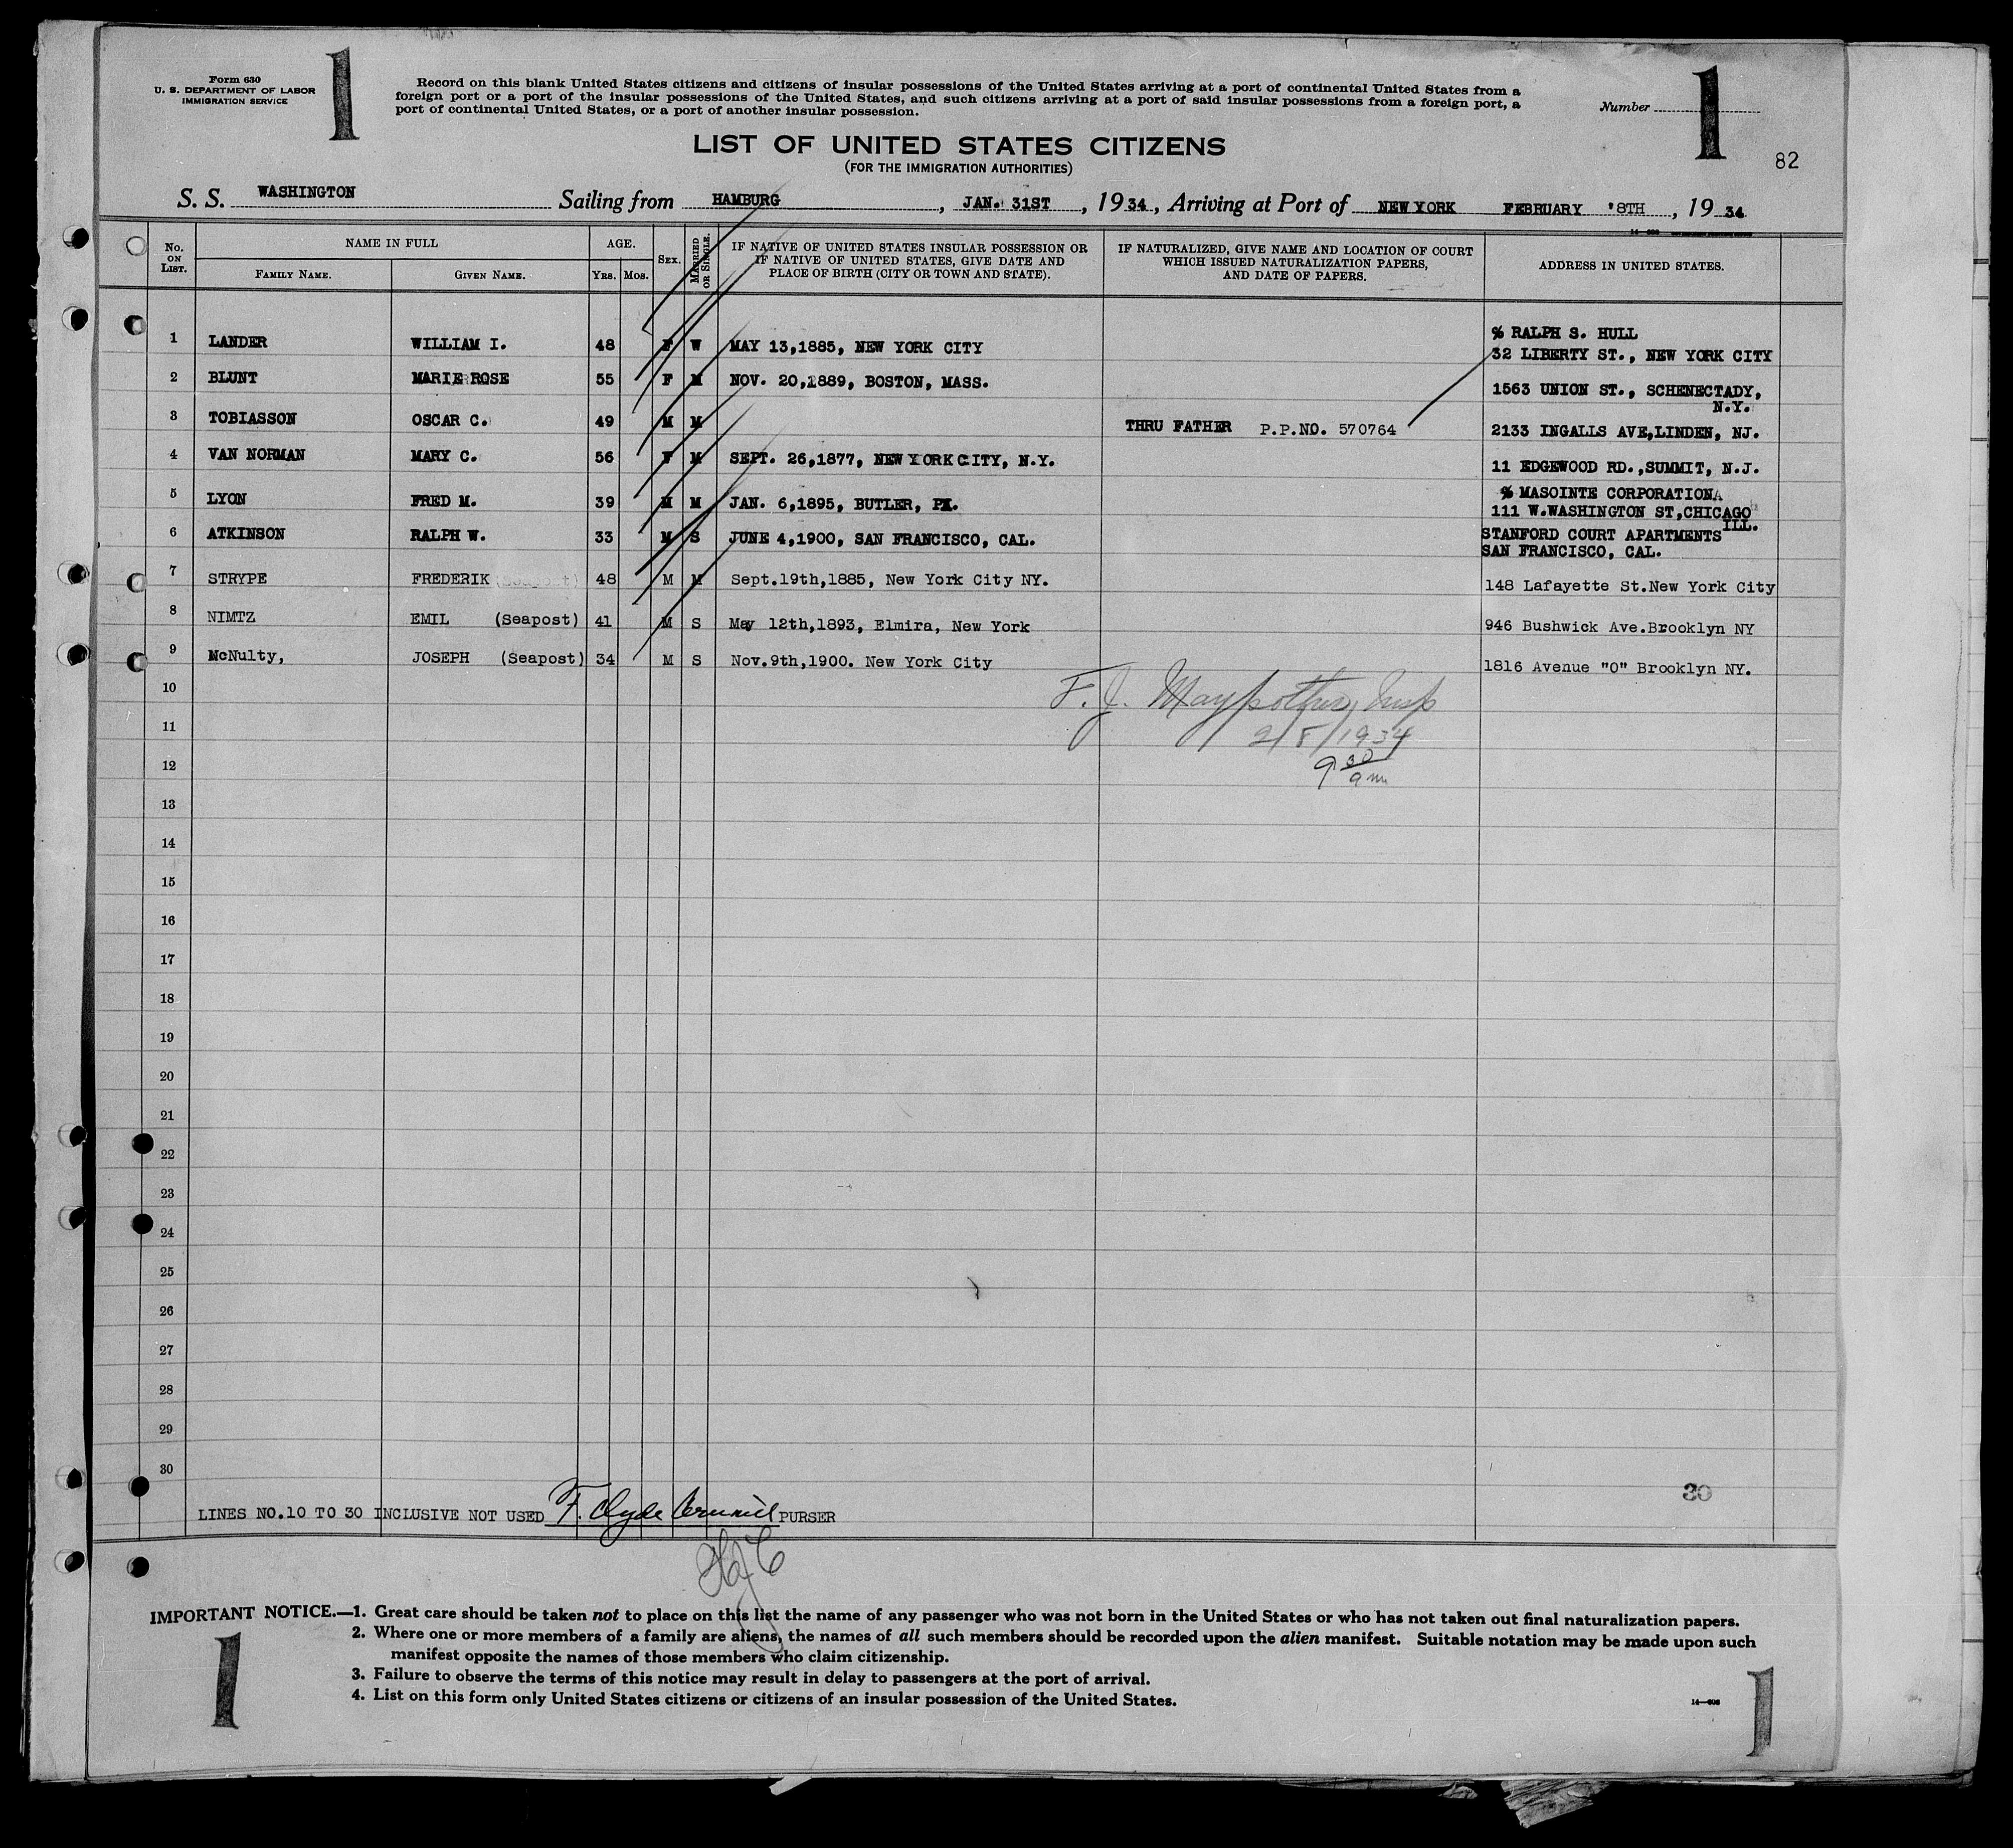 Form 630
U. S. DEPARTMENT OF LABOR
IMMIGRATION SERVICE
1
Record on this blank United States citizens and citizens of insular possessions of the United States arriving at a port of continental United States from a
foreign port or a port of the insular possessions of the United States, and such citizens arriving at a port of said insular possessions from a foreign port, a
port of continental United States, or a port of another insular possession.
Number
1
82
LIST OF UNITED STATES CITIZENS
(FOR THE IMMIGRATION AUTHORITIES)
S. S. WASHINGTON Sailing from HAMBURG, JAN. 31ST, 1934, Arriving at Port of NEW YORK FEBRUARY 8TH, 1934
No. ON LIST. NAME IN FULL FAMILY NAME. GIVEN NAME. AGE. Yrs. Mos. SEX. MARRIED OR SINGLE. IF NATIVE OF UNITED STATES INSULAR POSSESSION OR IF NATIVE OF UNITED STATES, GIVE DATE AND PLACE OF BIRTH (CITY OR TOWN AND STATE). IF NATURALIZED, GIVE NAME AND LOCATION OF COURT WHICH ISSUED NATURALIZATION PAPERS, AND DATE OF PAPERS. ADDRESS IN UNITED STATES.
1 LANDER WILLIAM I. 48 F W MAY 13,1885, NEW YORK CITY % RALPH S. HULL
32 LIBERTY ST., NEW YORK CITY
2 BLUNT MARIE ROSE 55 F M NOV. 20,1889, BOSTON, MASS. 1563 UNION ST., SCHENECTADY,
N.Y.
3 TOBIASSON OSCAR C. 49 M M THRU FATHER P.P.NO. 570764 2133 INGALLS AVE,LINDEN, NJ.
4 VAN NORMAN MARY C. 56 F M SEPT. 26,1877, NEW YORK CITY, N.Y. 11 EDGEWOOD RD.,SUMMIT, N.J.
5 LYON FRED M. 39 M M JAN. 6,1895, BUTLER, PA. % MASOINTE CORPORATION
111 W.WASHINGTON ST,CHICAGO
ILL.
6 ATKINSON RALPH W. 33 M S JUNE 4,1900, SAN FRANCISCO, CAL. STANFORD COURT APARTMENTS
SAN FRANCISCO, CAL.
7 STRYPE FREDERIK 48 M M Sept.19th,1885, New York City NY. 148 Lafayette St.New York City
8 NIMTZ EMIL (Seapost) 41 M S May 12th,1893, Elmira, New York 946 Bushwick Ave.Brooklyn NY
9 McNulty, JOSEPH (Seapost) 34 M S Nov.9th,1900. New York City 1816 Avenue "O" Brooklyn NY.
10
F. J. Insp
11
2/8/1934
12
9 30 am
13
14
15
16
17
18
19
20
21
22
23
24
25
26
27
28
29
30
30
LINES NO.10 TO 30 INCLUSIVE NOT USED F. Clyde PURSER
IMPORTANT NOTICE.—1. Great care should be taken not to place on this list the name of any passenger who was not born in the United States or who has not taken out final naturalization papers.
2. Where one or more members of a family are aliens, the names of all such members should be recorded upon the alien manifest. Suitable notation may be made upon such
manifest opposite the names of those members who claim citizenship.
3. Failure to observe the terms of this notice may result in delay to passengers at the port of arrival.
4. List on this form only United States citizens or citizens of an insular possession of the United States.
14—608
1
1